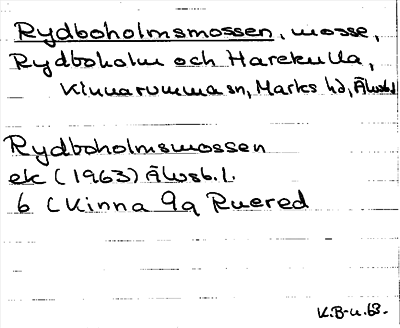 Rydboholmsmossen, mosse,
Rydboholm och Harekulla,
Kinnarumma sn, Marks hd, Älvsb.l
Rydboholmsmossen
ek (1963) Älvsb.l.
6 C Kinna 9a Ruered
K.B-u.63.